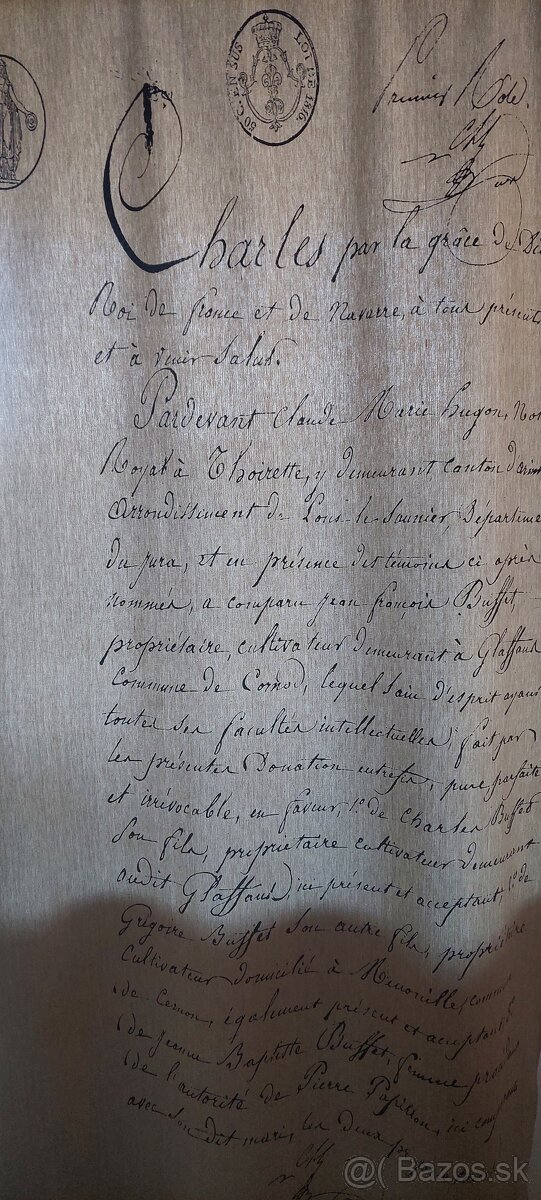 50 C. EN SUS
LOI DE 1816.
Premier Rôle.
Charles par la grâce de Di
Roi de france et de Navarre, à tous présent
et à venir Salut.
Pardevant Claude Marie hugon, No
Royal à Thoirette, y demeurant Canton d'arin
arrondissement de Lons-le-Saunier, Départeme
du jura, et en présence des témoins ci après
nommés, a comparu jean françois Buffet,
propriétaire, cultivateur demeurant à Glaffans
Commune de Cornod, lequel sain d'esprit ayant
toutes ses facultés intellectuelles, fait par
les présentes Donation entrefs, pure, parfaite
et irrévocable, en faveur, 1º. de Charles Buffet
son fils, propriétaire cultivateur demeurant
audit Glaffans, ici présent et acceptant, 2º. de
Grégoire Buffet son autre fils, propriétaire
Cultivateur domicilié à commu
de Cernon, également présent et acceptant
de jeanne Baptiste Buffet, femme
de l'autorité de Pierre Papillon, ici
avec son dit mari, les deux
@( Bazos.sk